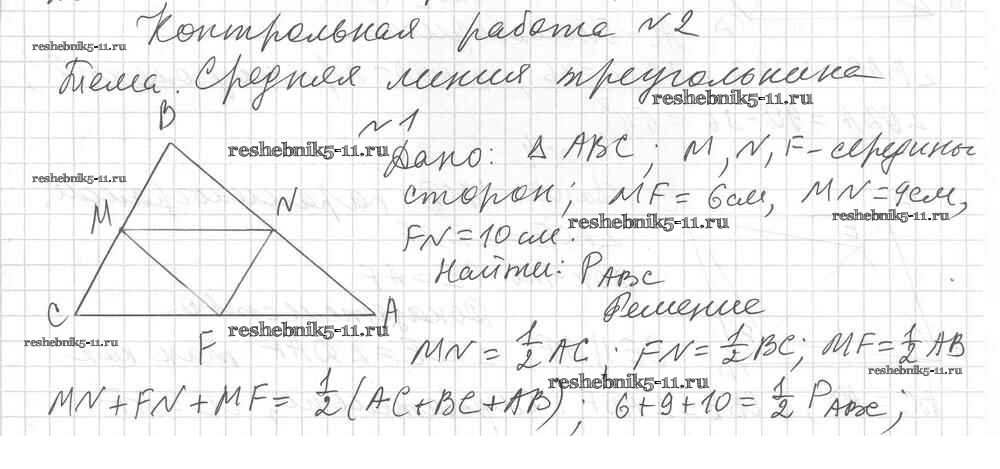 Контрольная работа №2
reshebnik5-11.ru
Тема. Средняя линия треугольника
reshebnik5-11.ru
B
№1
reshebnik5-11.ru
Дано: Δ ABC; M, N, F - середины
reshebnik5-11.ru
сторон; MF = 6см, MN = 9см,
M
N
reshebnik5-11.ru
reshebnik5-11.ru
FN = 10 см.
Найти: P ABC
Решение
C
F
A
reshebnik5-11.ru
reshebnik5-11.ru
MN = 1/2 AC; FN = 1/2 BC; MF = 1/2 AB
reshebnik5-11.ru
reshebnik5-11.ru
MN + FN + MF = 1/2 (AC + BC + AB); 6 + 9 + 10 = 1/2 P ABC;